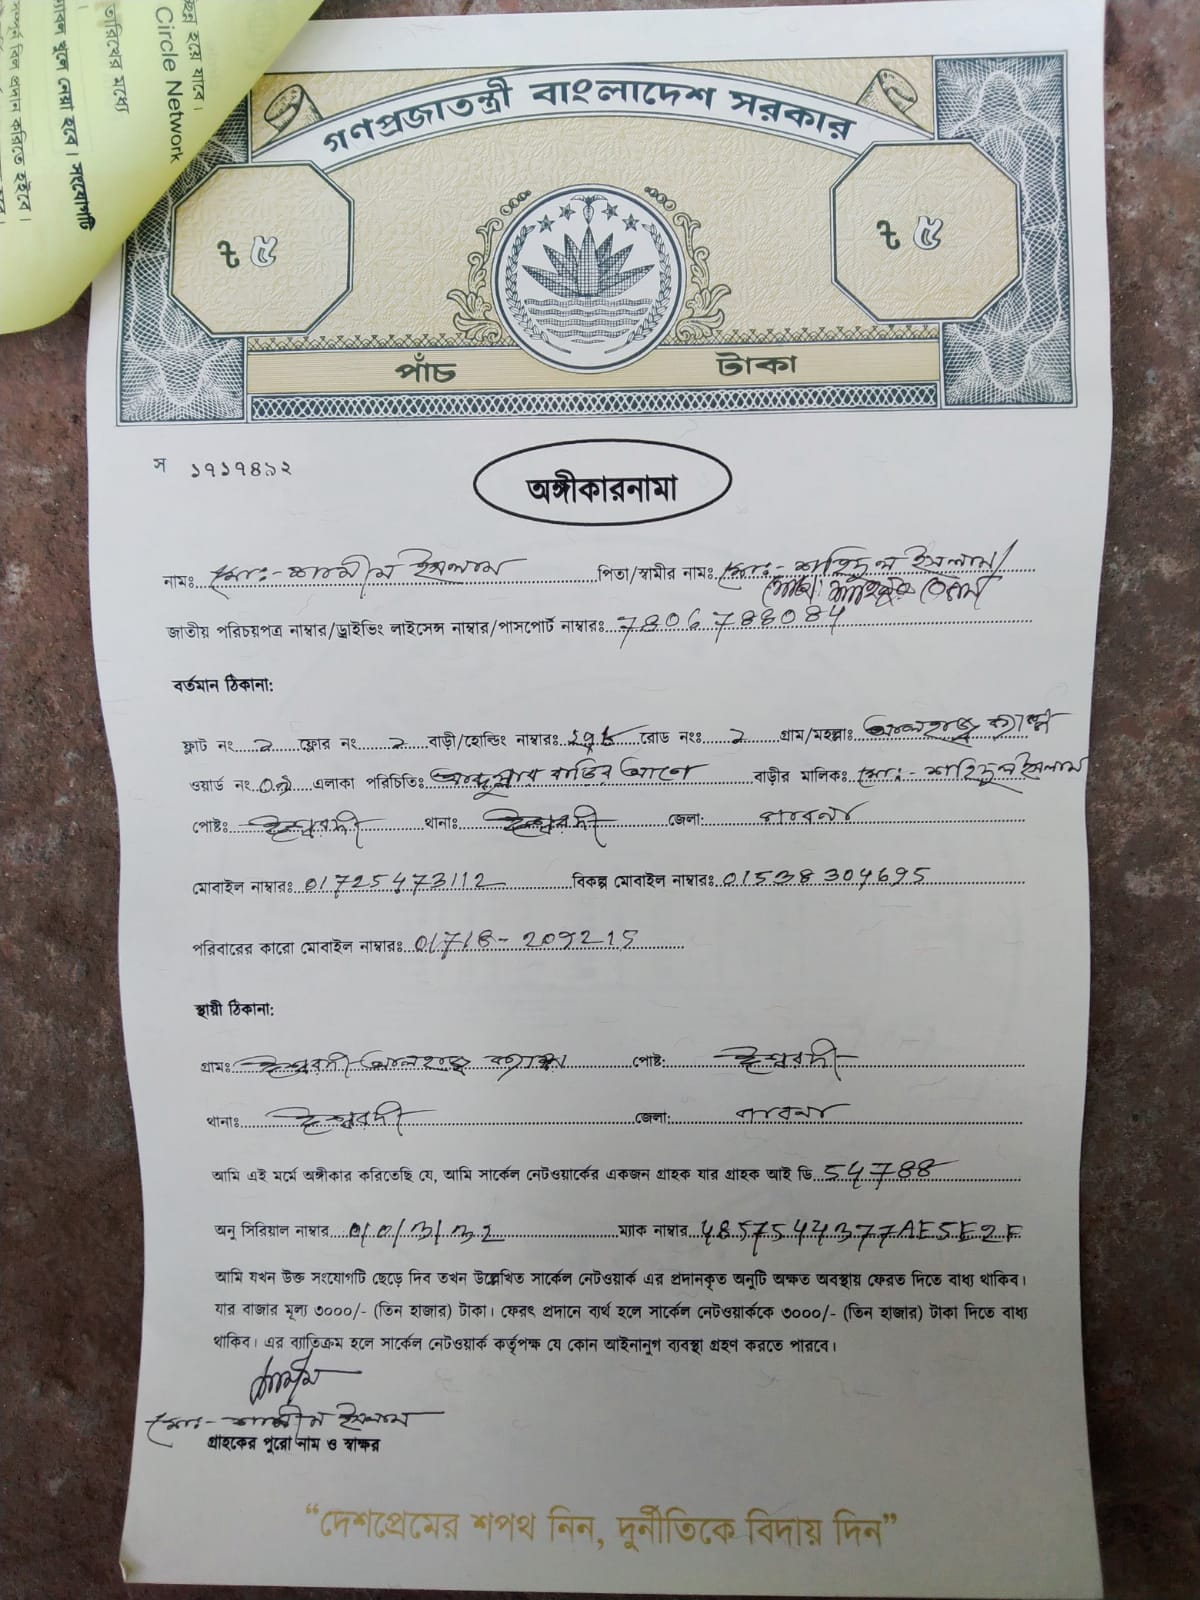 ছন্ন হয়ে যাবে।
Circle Network
তারিখের মধ্যে
গণপ্রজাতন্ত্রী বাংলাদেশ সরকার
৳ ৫
৳ ৫
পাঁচ টাকা
স ১৭১৭৪৯২
অঙ্গীকারনামা
নামঃ মোঃ- শামীম ইসলাম পিতা/স্বামীর নামঃ মোঃ- শহিদুল ইসলাম/
জাতীয় পরিচয়পত্র নাম্বার/ড্রাইভিং লাইসেন্স নাম্বার/পাসপোর্ট নাম্বারঃ 7806788084
বর্তমান ঠিকানা:
ফ্লাট নং ২ ফ্লোর নং ২ বাড়ী/হোল্ডিং নাম্বারঃ রোড নংঃ ২ গ্রাম/মহল্লাঃ আলহাজ্ব ক্যাম্প
ওয়ার্ড নং এলাকা পরিচিতিঃ বাড়ির আগে বাড়ীর মালিকঃ মোঃ- শহিদুল ইসলাম
পোষ্টঃ ঈশ্বরদী থানাঃ ঈশ্বরদী জেলা: পাবনা
মোবাইল নাম্বারঃ 01725473112 বিকল্প মোবাইল নাম্বারঃ 01538304695
পরিবারের কারো মোবাইল নাম্বারঃ 01718-209215
স্থায়ী ঠিকানা:
গ্রামঃ ঈশ্বরদী আলহাজ্ব ক্যাম্প পোষ্ট: ঈশ্বরদী
থানাঃ ঈশ্বরদী জেলা: পাবনা
আমি এই মর্মে অঙ্গীকার করিতেছি যে, আমি সার্কেল নেটওয়ার্কের একজন গ্রাহক যার গ্রাহক আই ডি 54788
অনু সিরিয়াল নাম্বার ম্যাক নাম্বার 4857544377AE5E2F
আমি যখন উক্ত সংযোগটি ছেড়ে দিব তখন উল্লেখিত সার্কেল নেটওয়ার্ক এর প্রদানকৃত অনুটি অক্ষত অবস্থায় ফেরত দিতে বাধ্য থাকিব।
যার বাজার মূল্য ৩০০০/- (তিন হাজার) টাকা। ফেরৎ প্রদানে ব্যর্থ হলে সার্কেল নেটওয়ার্ককে ৩০০০/- (তিন হাজার) টাকা দিতে বাধ্য
থাকিব। এর ব্যাতিক্রম হলে সার্কেল নেটওয়ার্ক কর্তৃপক্ষ যে কোন আইনানুগ ব্যবস্থা গ্রহণ করতে পারবে।
শামীম
মোঃ- শামীম ইসলাম
গ্রাহকের পুরো নাম ও স্বাক্ষর
“দেশপ্রেমের শপথ নিন, দুর্নীতিকে বিদায় দিন”